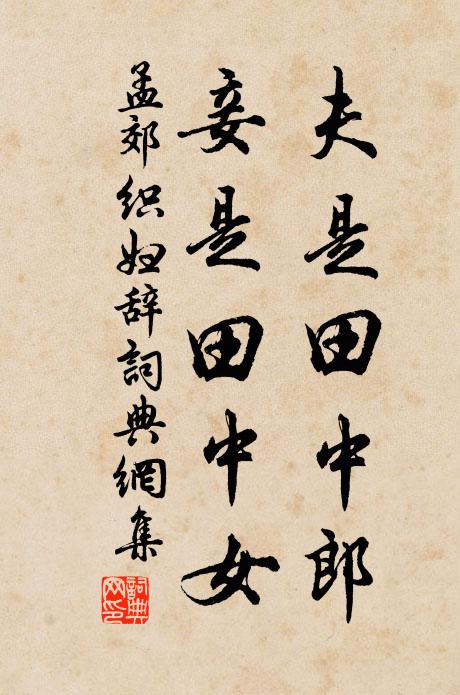 夫是田中郎
妾是田中女
孟郊织妇辞詞典網集
詞典网印